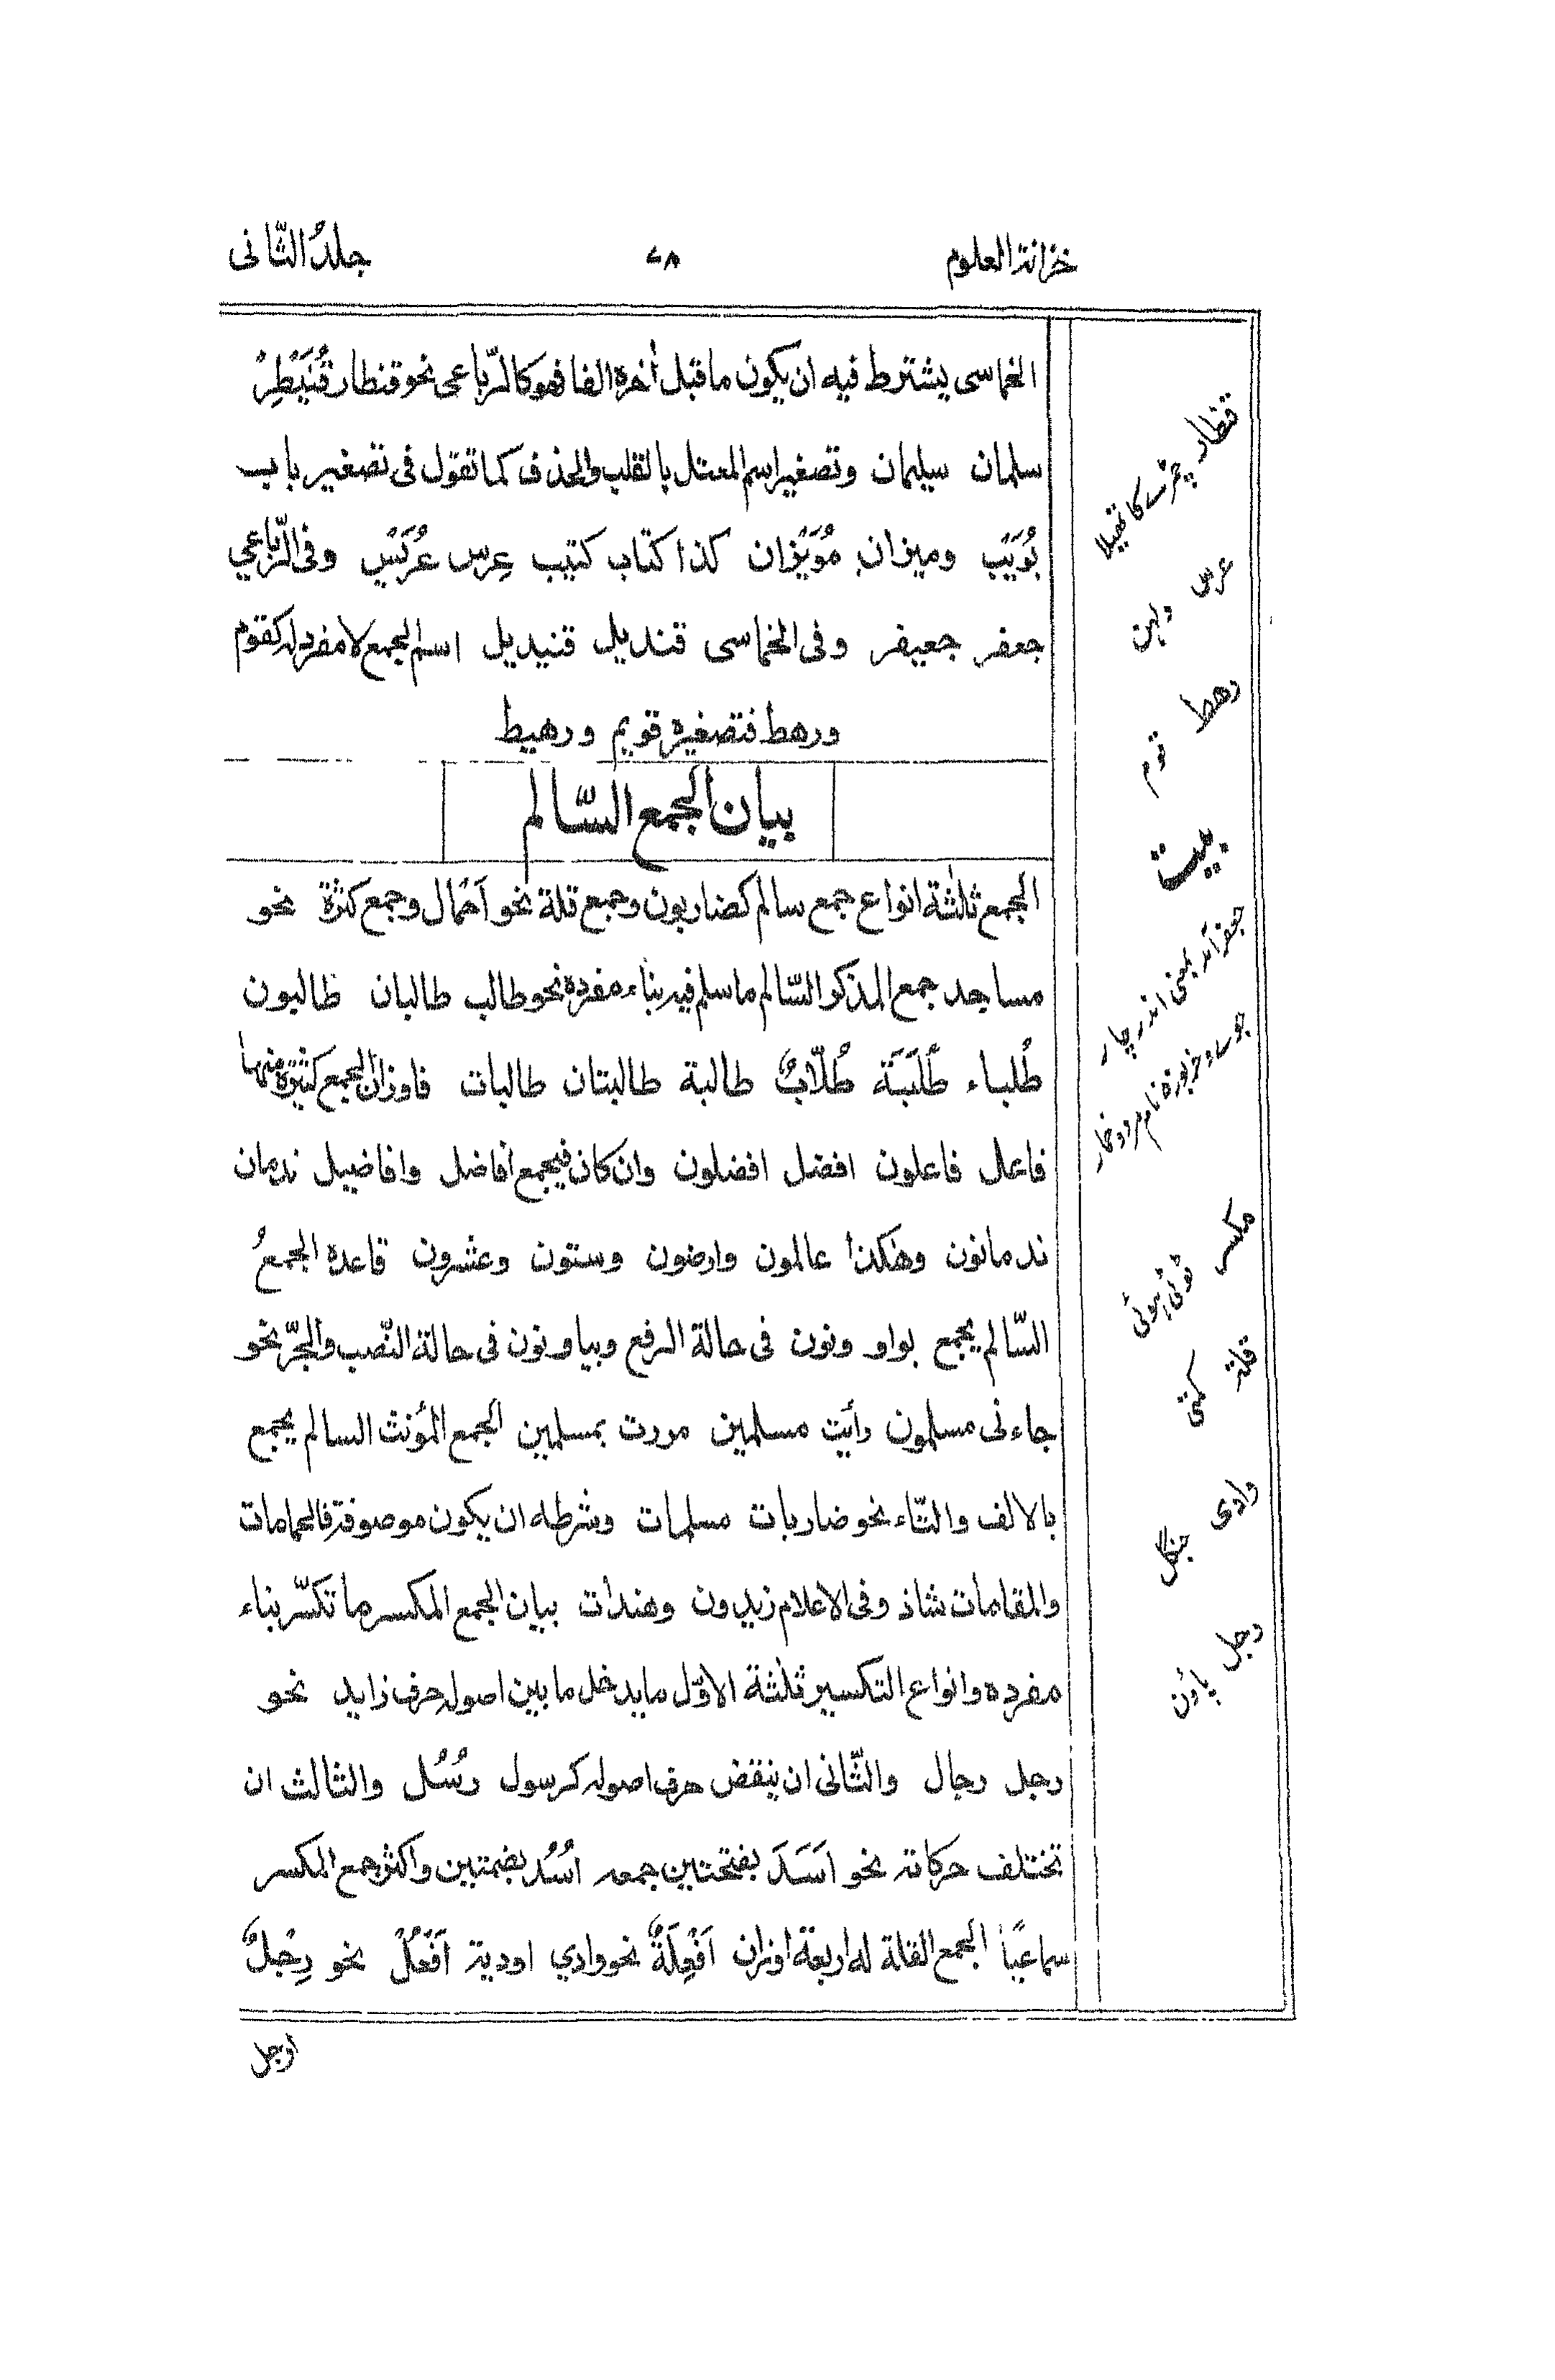 خزانة العلوم ٧٨ جلدُ الثّانی
الخماسی یشترط فیه ان یکون ما قبل أخره الفا فهو کالرّباعی نحو قنطار قُنَیْطِرْ
سلمان سیلیمان وتصغیر اسم المعتل بالقلب والحذف کما تقول فی تصغیر باب
بُوَیْب ومیزان مُوَیْزان کذا کتاب کتیب عِرس عُرَیْسٌ وفی الرّباعی
جعفر جعیفر وفی الخماسی قندیل قنیدیل اسم الجمع لا مفرد له کقوم
ورهط فتصغیره قویم ورهیط
بیان الجمع السّالم
الجمع ثلثة انواع جمع سالم کضاربون وجمع قلة نحو اَحْمال وجمع کثرة نحو
مساجد جمع المذکو السّالم ما سلم فیه بناء مفرده نحو طالب طالبان طالبون
طُلباء طَلَبَة طُلّابٌ طالبة طالبتان طالبات فاوزان الجمع کثیرة منها
فاعل فاعلون افضل افضلون وان کان فیجمع أفاضل وافاضیل ندمان
ندمانون وهٰکذا عالمون وارضون وستون وعشرون قاعدة الجمعُ
السّالم یجمع بواو ونون فی حالة الرفع وبیا ونون فی حالة النّصب والجرّ نحو
جاءنی مسلمون رأیت مسلمین مررت بمسلمین الجمع المؤنث السالم یجمع
بالالف والتّاء نحو ضاربات مسلمات وشرطه ان یکون موصوفة فالحمامات
والمقامات شاذ وفی الاعلام زیدون وهندات بیان الجمع المکسر ما تکسّر بناء
مفرده وانواع التکسیر ثلثة الاوّل ما یدخل ما بین اصوله حرف زاید نحو
رجل رجال والثّانی ان ینقض حرف اصوله کرسول رُسُل والثالث ان
تختلف حرکاته نحو اَسَدَ بفتحتین جمعه اُسُد بضمتین واکثر جمع المکسر
سماعیًا الجمع القلة له اربعة اوزان اَفْعِلَةٌ نحو وادي اودیة اَفْعُلْ نحو رِجْلٌ
ارجل
قنطار چمڑے کا تھیلا
عرس دلہن
رهط قوم
بیت
جعفر آمد بمعنی اندر چار
جوے و خربوزہ نام مرد و خار
مکسر ٹوٹی ہوئی
قلة کمتی
وادی جنگل
رجل پاؤن